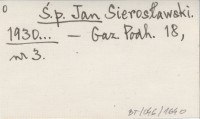 Ś.p. Jan Sierosławski.
1930... — Gaz. Podh. 18,
nr 3.